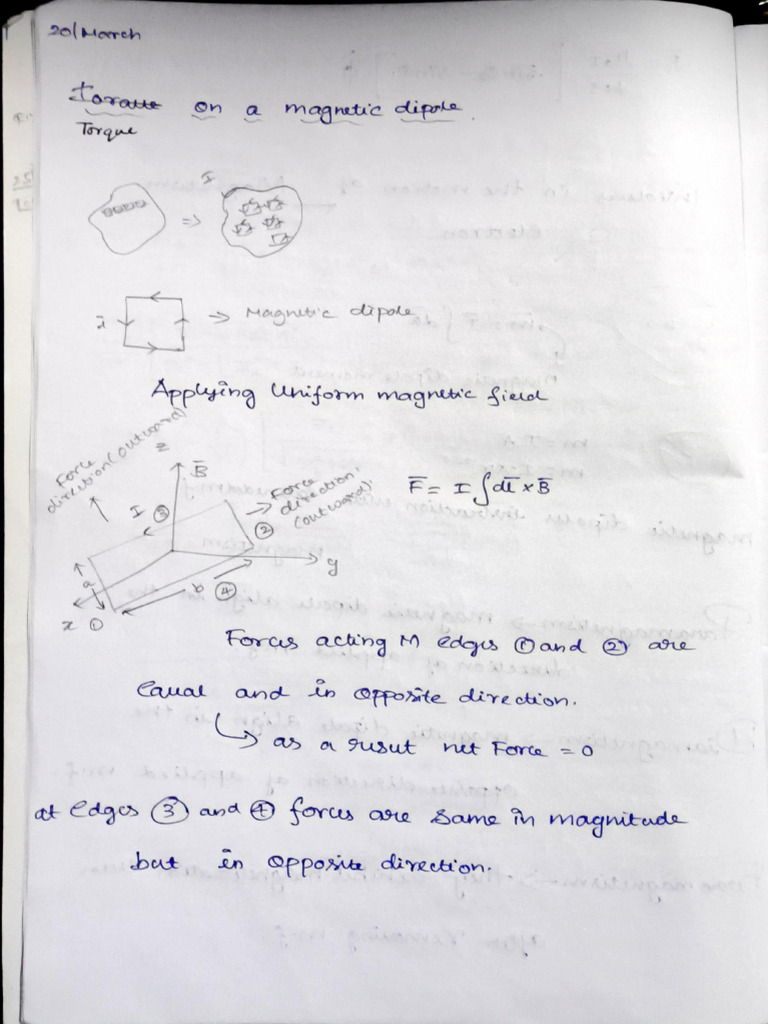 20/March
on a magnetic dipole.
Torque
I
=>
ī => Magnetic dipole
Applying Uniform magnetic field
Force direction (outward)
z
B̄
I ③
Force direction. (outward).
②
F̄ = I ∫ dl̄ × B̄
y
a
b ④
x ①
Forces acting M edges ① and ② are
equal and in opposite direction.
↳ as a resut net Force = 0
at edges ③ and ④ forces are same in magnitude
but in opposite direction.